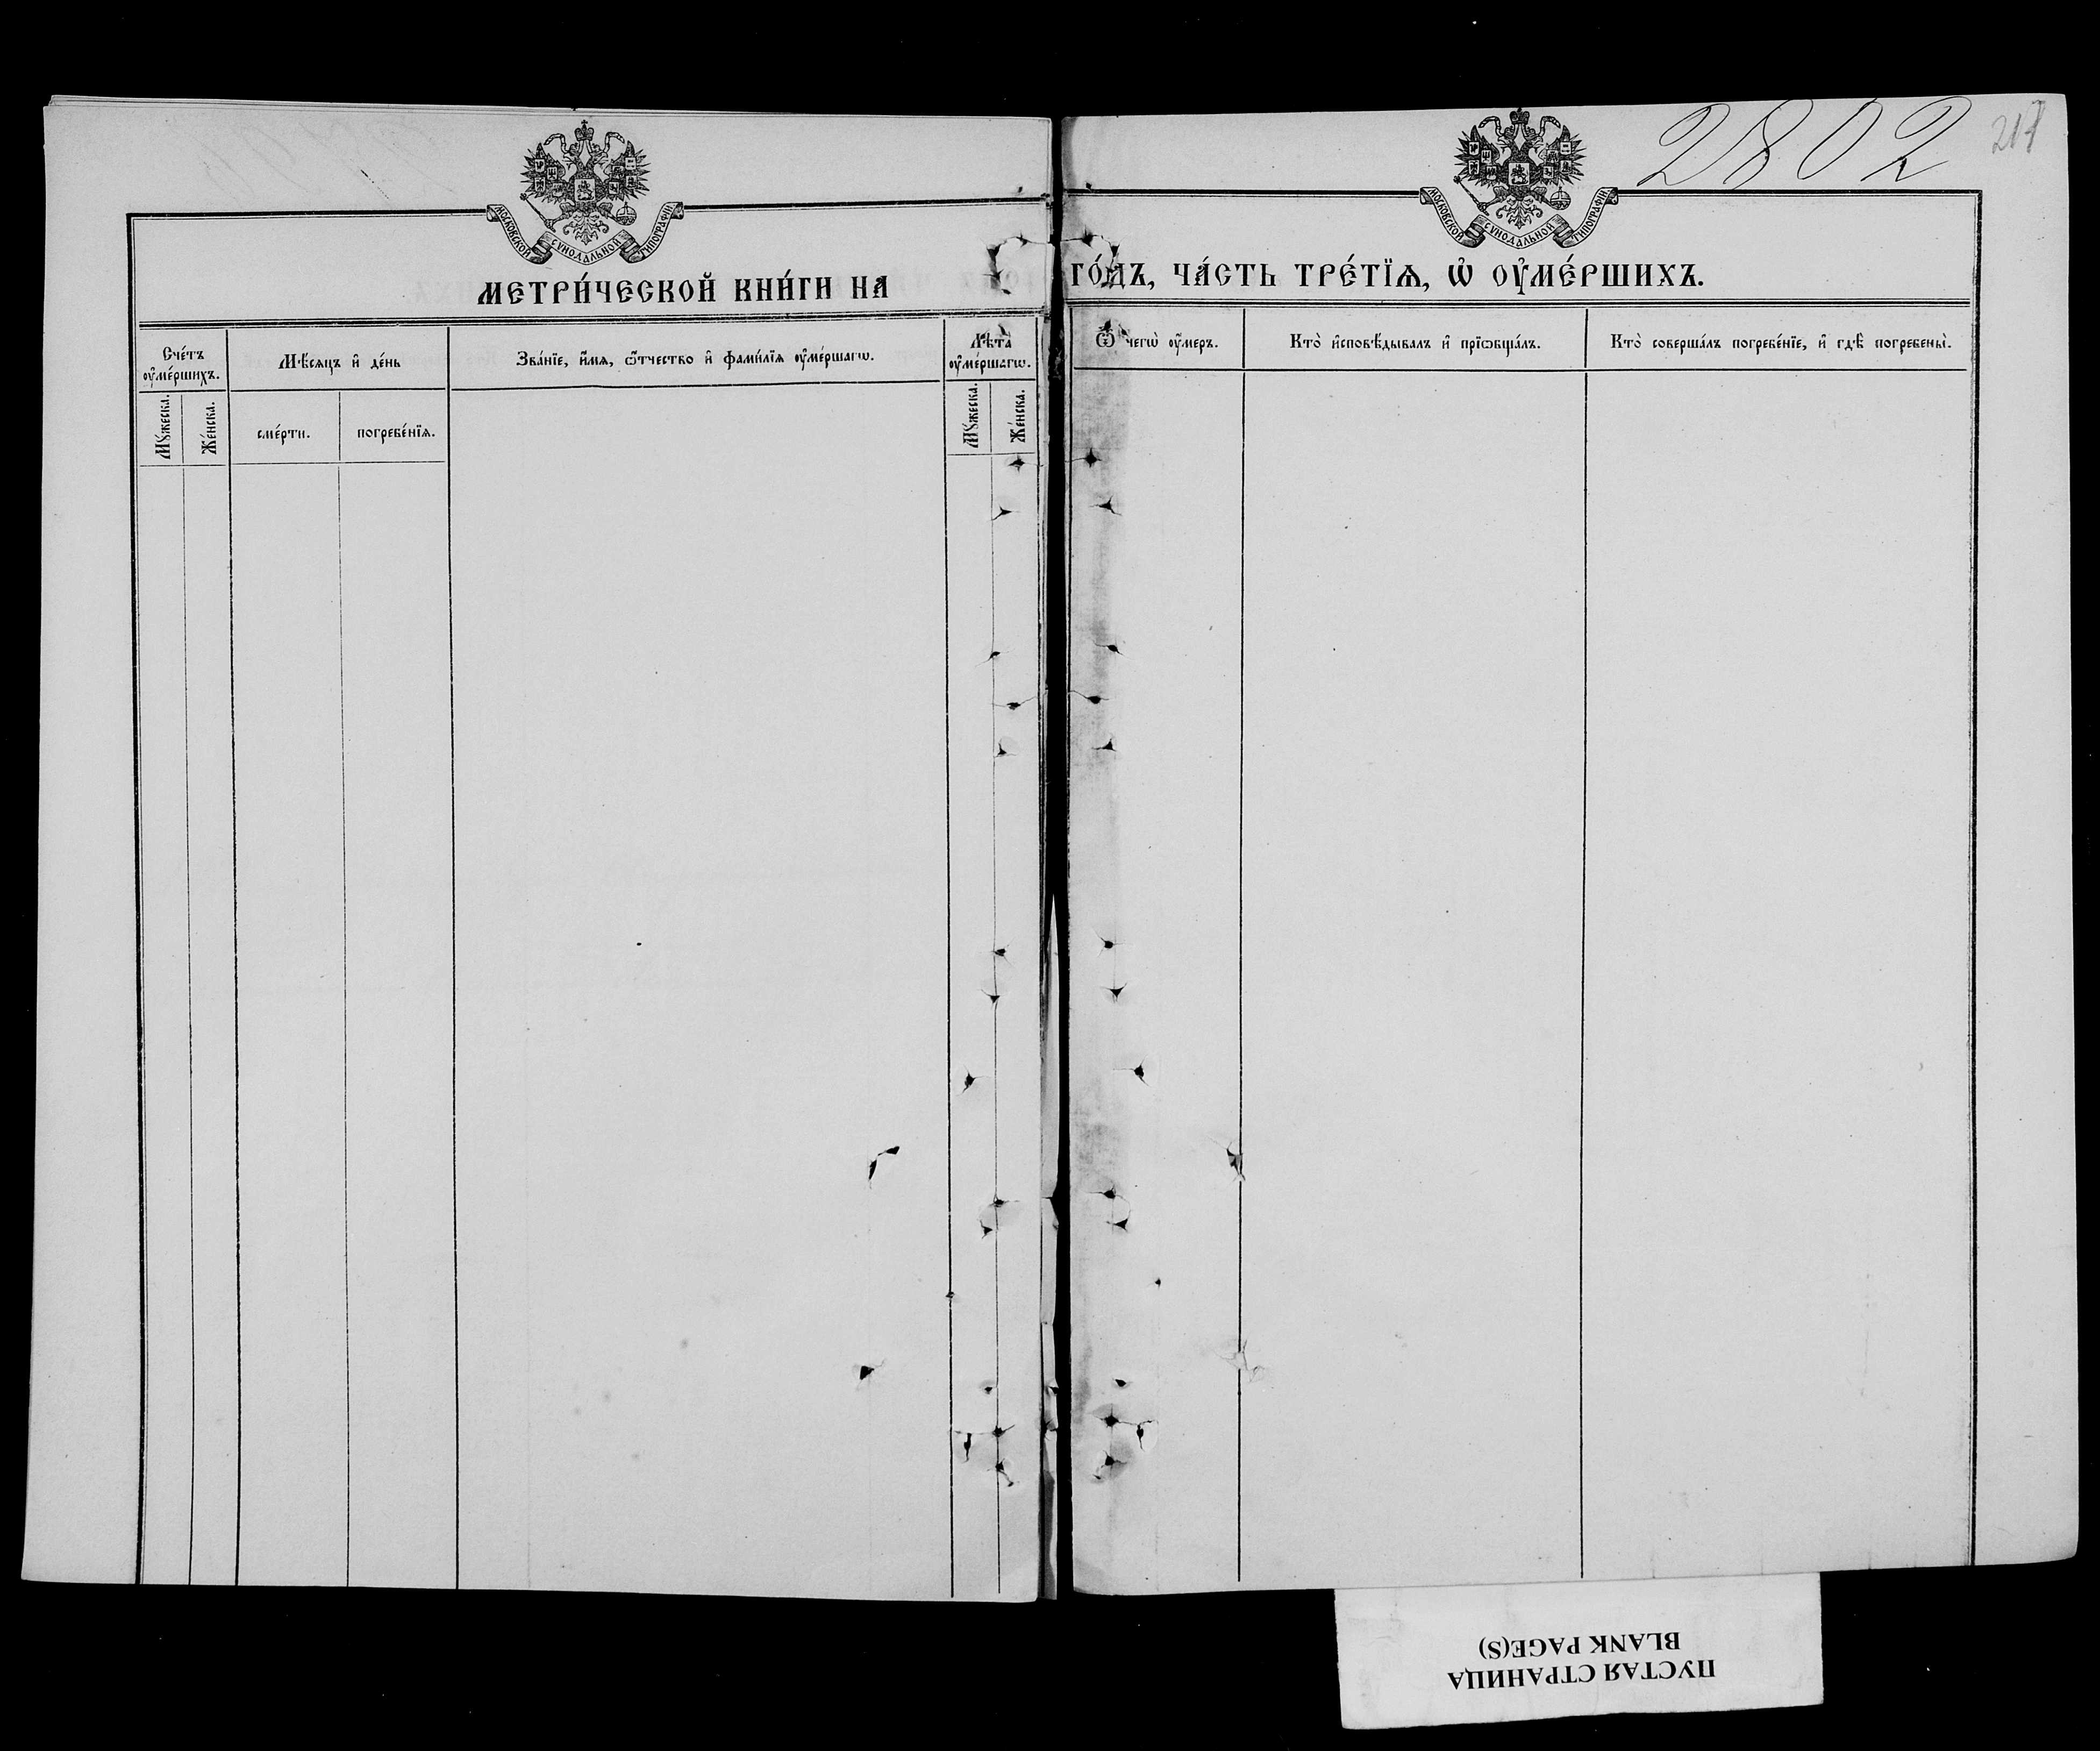 2802
МОСКОВСКОЙ СѴНОДАЛЬНОЙ ТИПОГРАФІИ
МОСКОВСКОЙ СѴНОДАЛЬНОЙ ТИПОГРАФІИ
МЕТРИ́ЧЕСКОЙ КНИ́ГИ НА ГО́ДЪ, ЧА́СТЬ ТРЕ́ТЇѦ, Ѡ҆ ОУ҆МЕ́РШИХЪ.
Сче́тъ оу҆ме́ршихъ.
Мѣ́сѧцъ и҆ де́нь
Зва́нїе, и҆́мѧ, ѻ҆́тчество и҆ фами́лїѧ оу҆ме́ршагѡ.
Лѣ́та оу҆ме́ршагѡ.
Ѿ чегѡ̀ оу҆́меръ.
Кто̀ и҆сповѣ́дывалъ и҆ прїѡбща́лъ.
Кто̀ соверша́лъ погребе́нїе, и҆ гдѣ̀ погребены̀.
Мꙋ́жеска.
Же́нска.
сме́рти.
погребе́нїѧ.
Мꙋ́жеска.
Же́нска.
ПУСТАЯ СТРАНИЦА
BLANK PAGE(S)